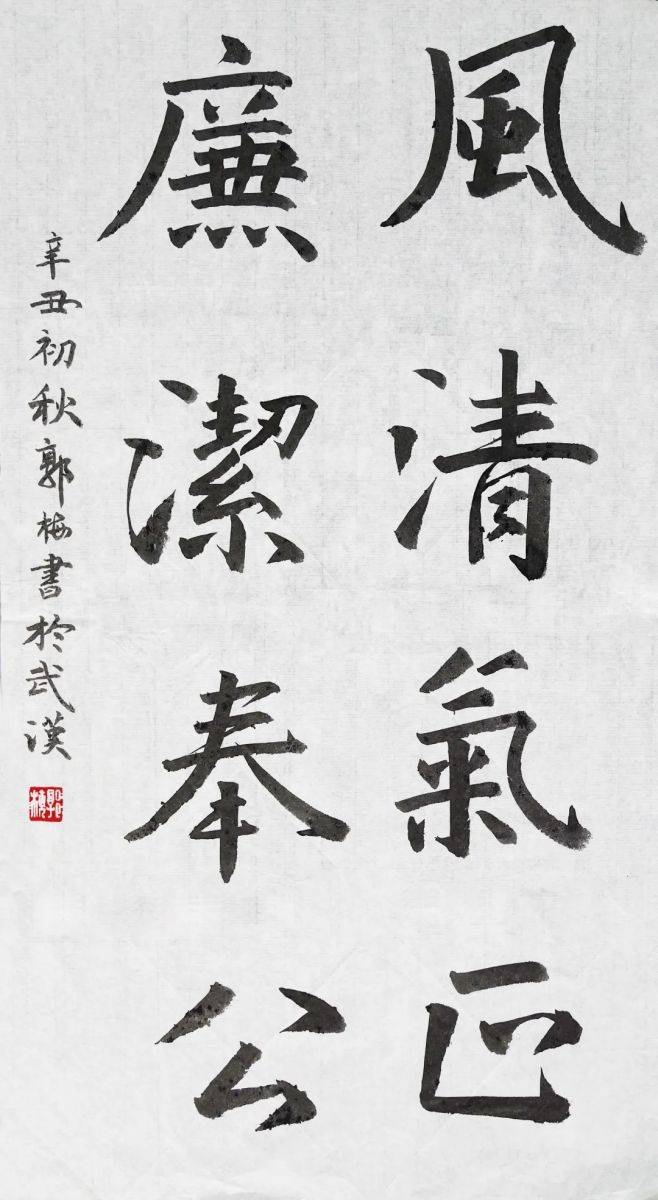 風清氣正
廉潔奉公
辛丑初秋郭梅書於武漢
郭梅